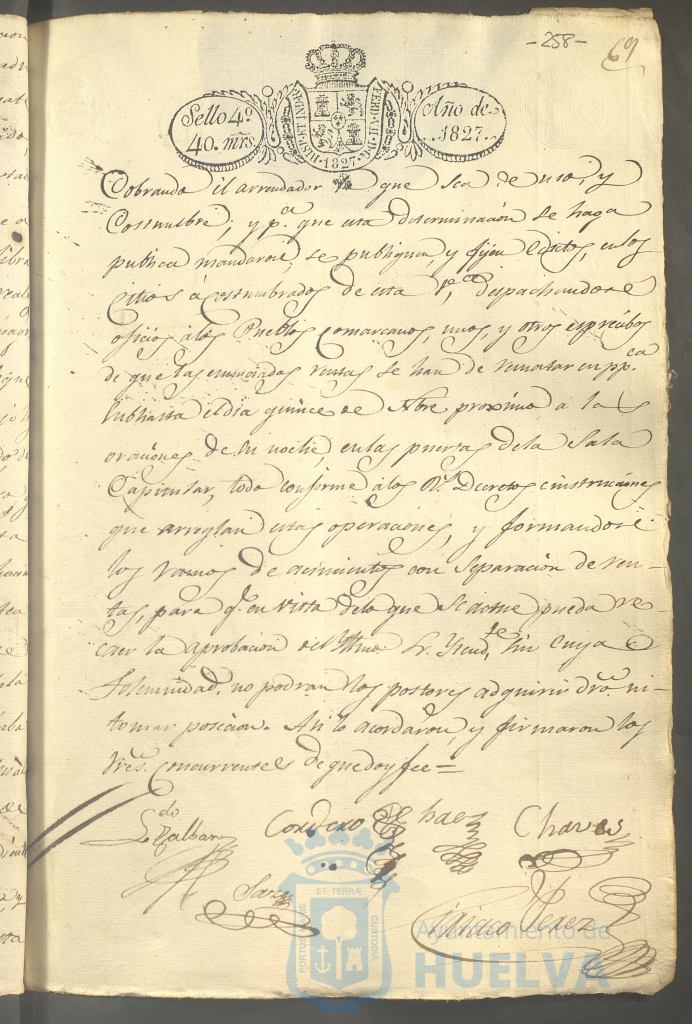 -258-
69
Sello 4º
40. mrs.
HISP. ET IND. R.
FERD. VII. D. G.
1827
Año de
1827.
Cobrando el arrendador lo que sea de uso, y
Costumbre; y pª que esta determinacion se haga
publica mandaron, se publiquen y fijen Edictos, en los
Citios acostumbrados de esta vª, despachandose
oficios a los Pueblos comarcanos, unos, y otros expresibos
de que las enunciadas rentas se han de rematar en ppca
Subhasta el dia quince de Nbre proximo a las
oraciones de su noche, en las puertas de la Sala
Capitular, todo conforme a los Rs. Decretos e instrucciones
que arreglan estas operaciones, y formandose
los ramos de acimientos con separacion de ren-
tas, para q.e en vista de lo que se actue pueda re-
caer la aprobacion del Yltmo Sr. Ytend.te, sin cuya
Solemnidad no podran los postores adquirir dro. ni
tomar posecion. Asi lo acordaron, y firmaron los
Sres. Concurrentes de que doy fee =
Ldo Calban
Cordero
Chaves
Ignacio Perez
PORTUS MARIS
ET TERRÆ
CUSTODIA
Ayuntamiento de
HUELVA